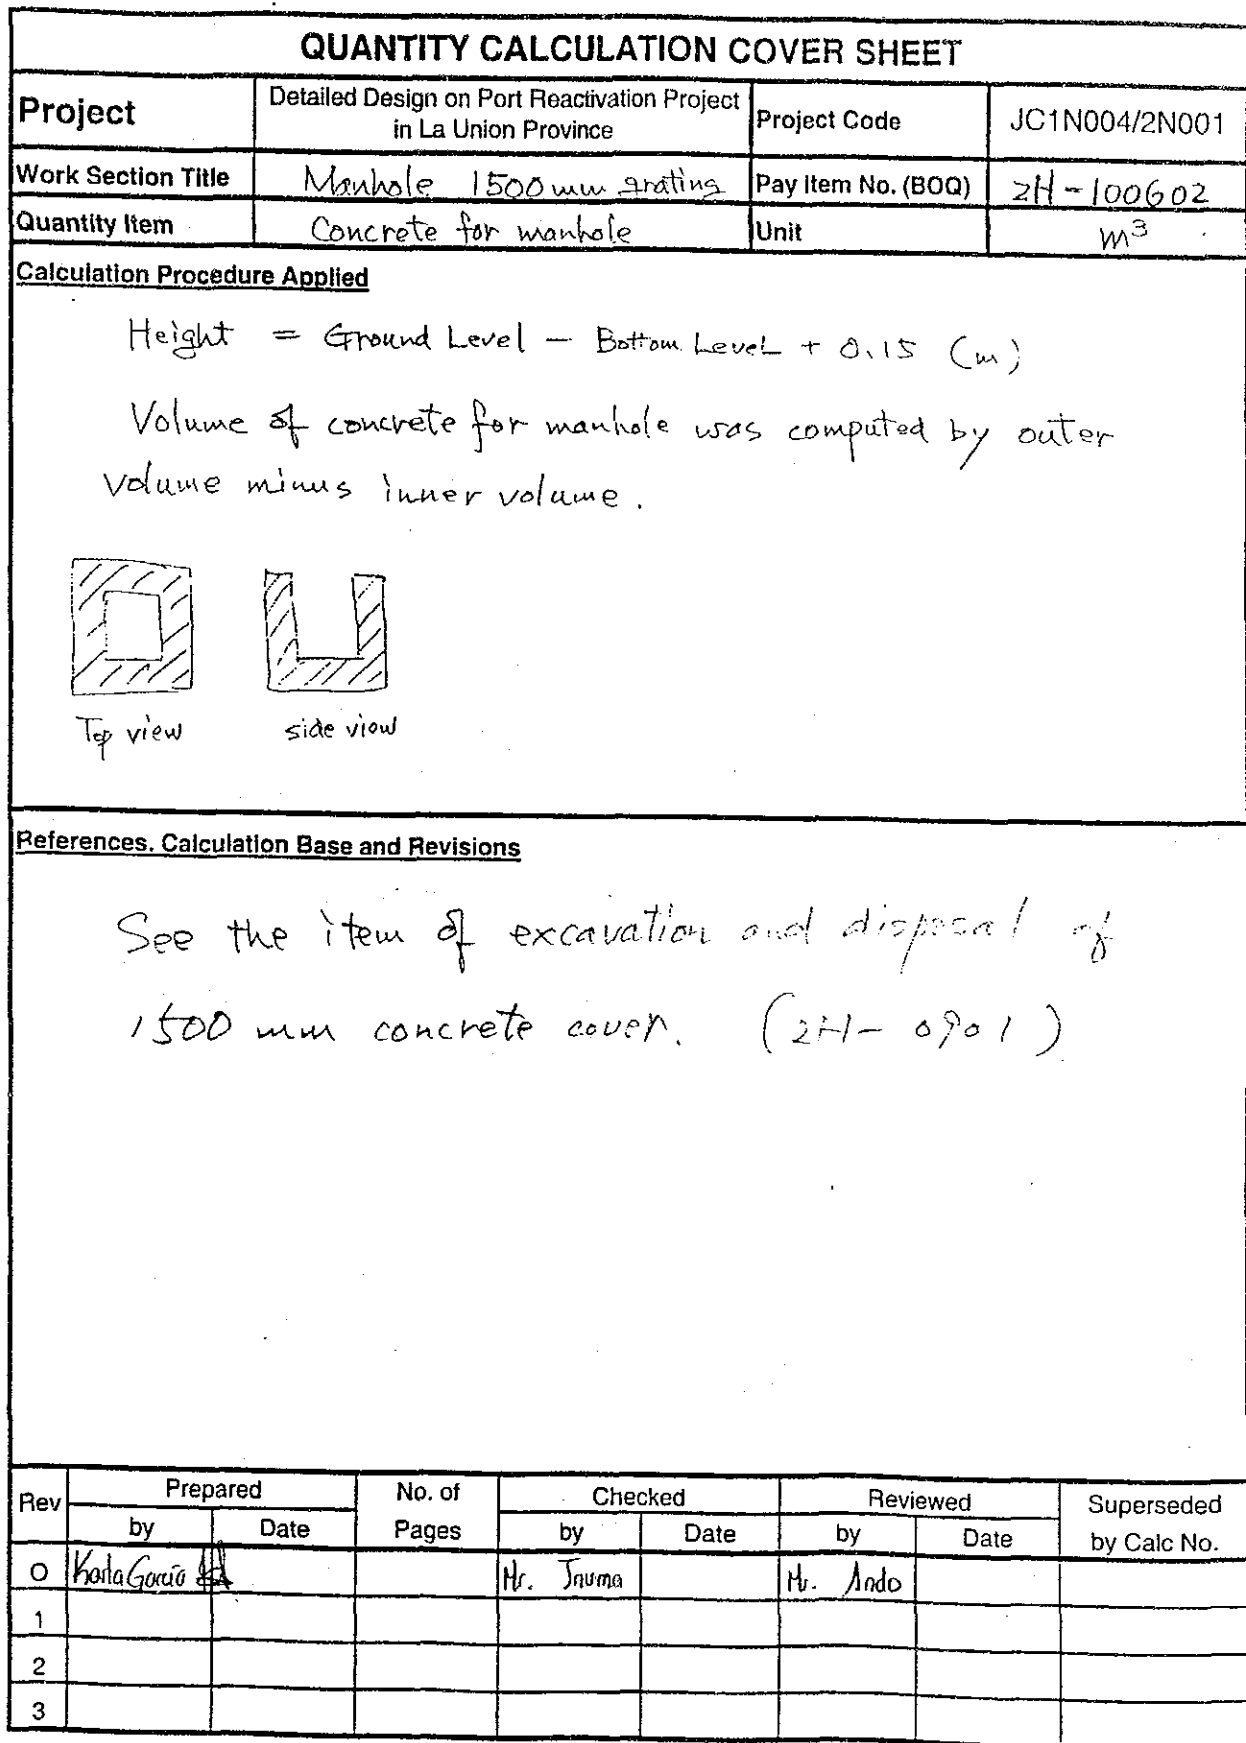 QUANTITY CALCULATION COVER SHEET
Project
Detailed Design on Port Reactivation Project
in La Union Province
Project Code
JC1N004/2N001
Work Section Title
Manhole 1500 mm grating
Pay Item No. (BOQ)
2H-100602
Quantity Item
Concrete for manhole
Unit
m³
Calculation Procedure Applied
Height = Ground Level - Bottom Level + 0.15 (m)
Volume of concrete for manhole was computed by outer
volume minus inner volume.
Top view side view
References. Calculation Base and Revisions
See the item of excavation and disposal of
1500 mm concrete cover. (2H-0901)
Rev Prepared No. of Checked Reviewed Superseded
by Date Pages by Date by Date by Calc No.
0 Karla García Mr. Inuma Mr. Ando
1
2
3